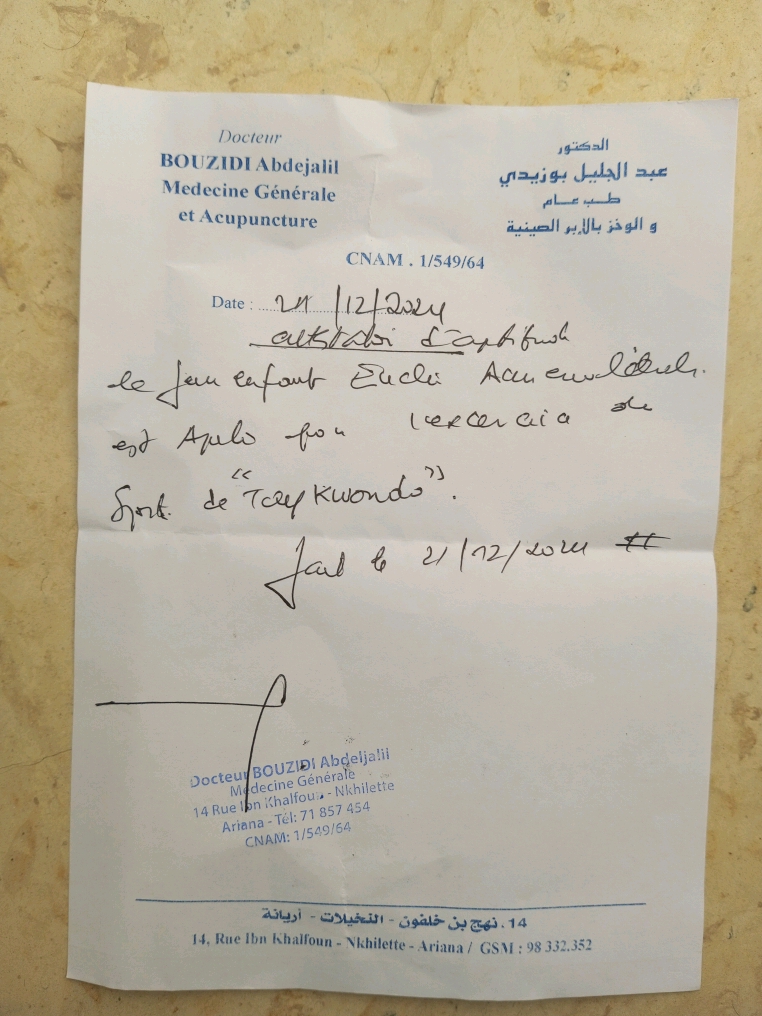 Docteur
BOUZIDI Abdejalil
Medecine Générale
et Acupuncture
الدكتور
عبد الجليل بوزيدي
طب عام
و الوخز بالإبر الصينية
CNAM . 1/549/64
Date : 21/12/2024
d'aptitude
le enfant
est pour l'exercice de
Sport de "TaeyKwondo".
Fait le 21/12/2024
Docteur BOUZIDI Abdeljalil
Médecine Générale
14 Rue Ibn Khalfoun - Nkhilette
Ariana - Tél: 71 857 454
CNAM: 1/549/64
14 ، نهج بن خلفون - النخيلات - أريانة
14, Rue Ibn Khalfoun - Nkhilette - Ariana / GSM : 98 332.352